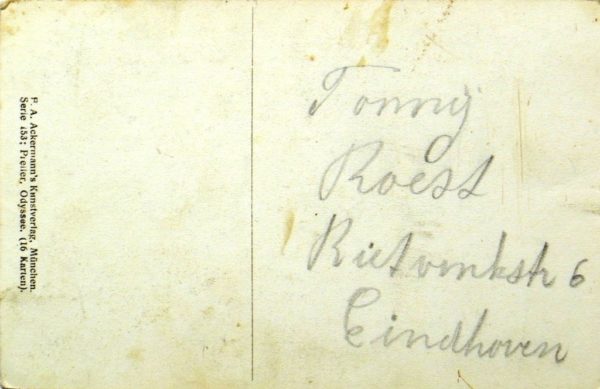 F. A. Ackermann's Kunstverlag, München.
Serie 153: Preller, Odyssee. (16 Karten).
Tonny
Roest
Rietvinkstr 6
Eindhoven